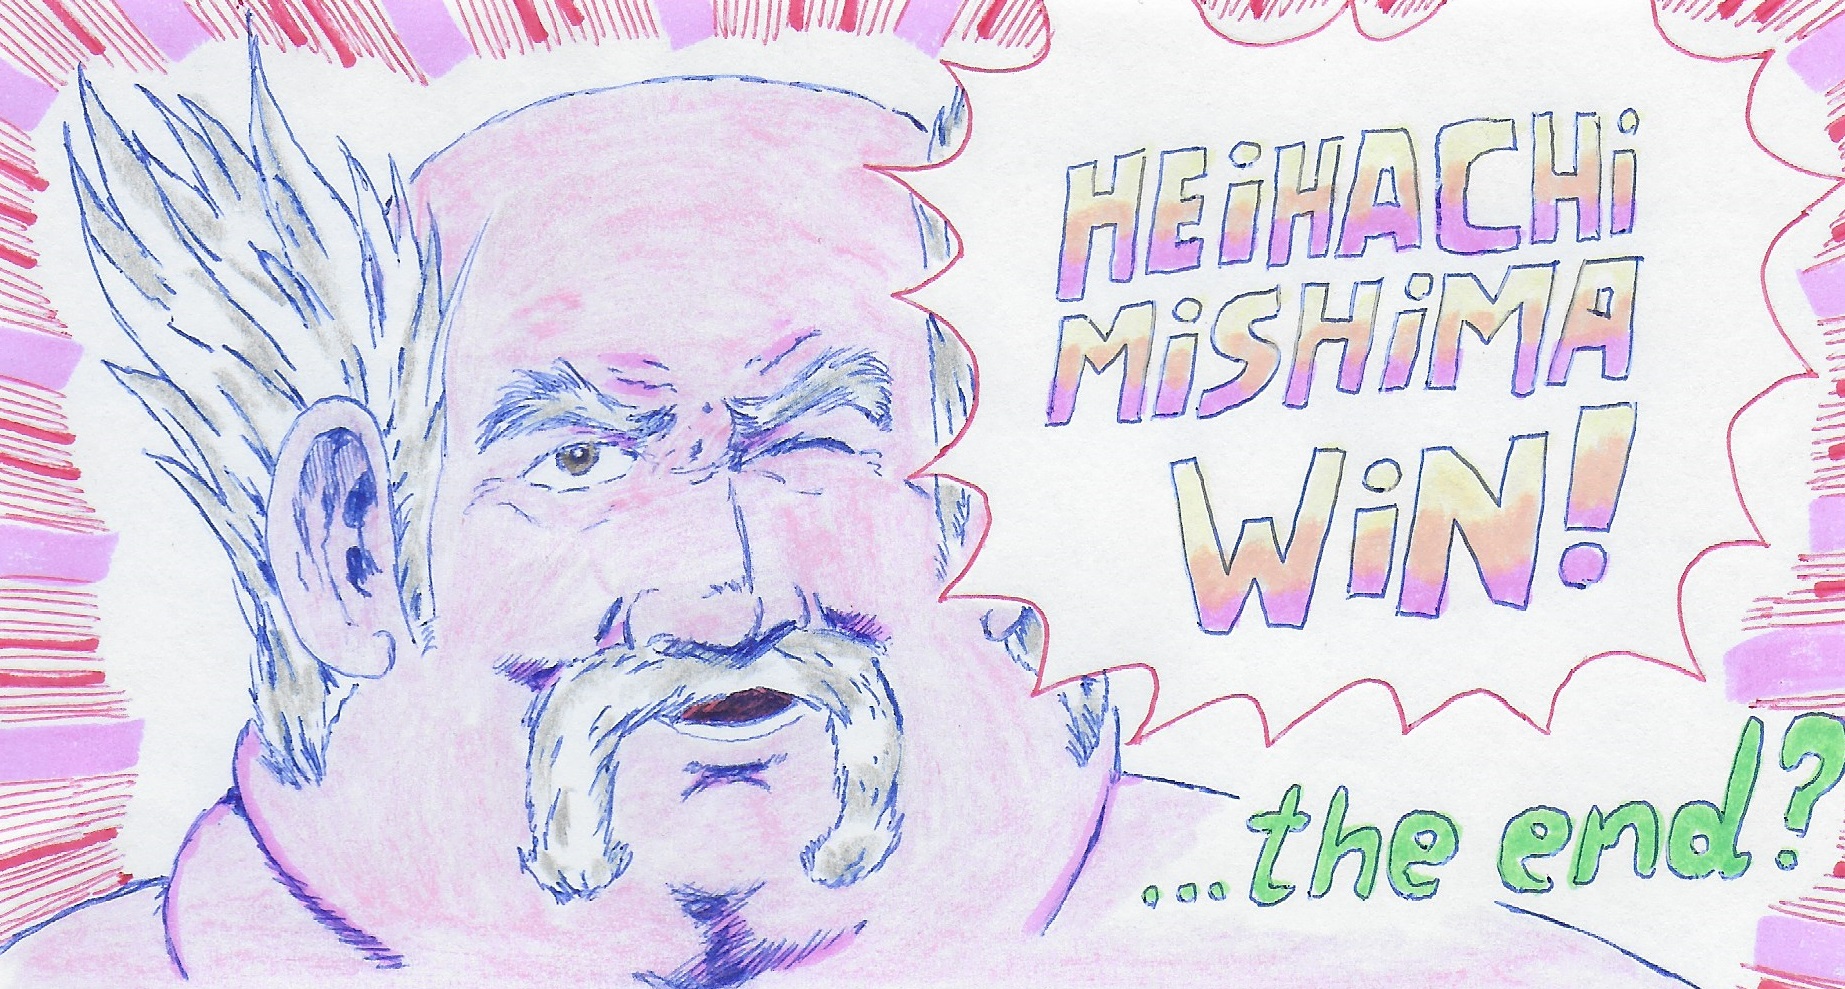 HEiHACHi
MiSHiMA
WiN!
...the end?